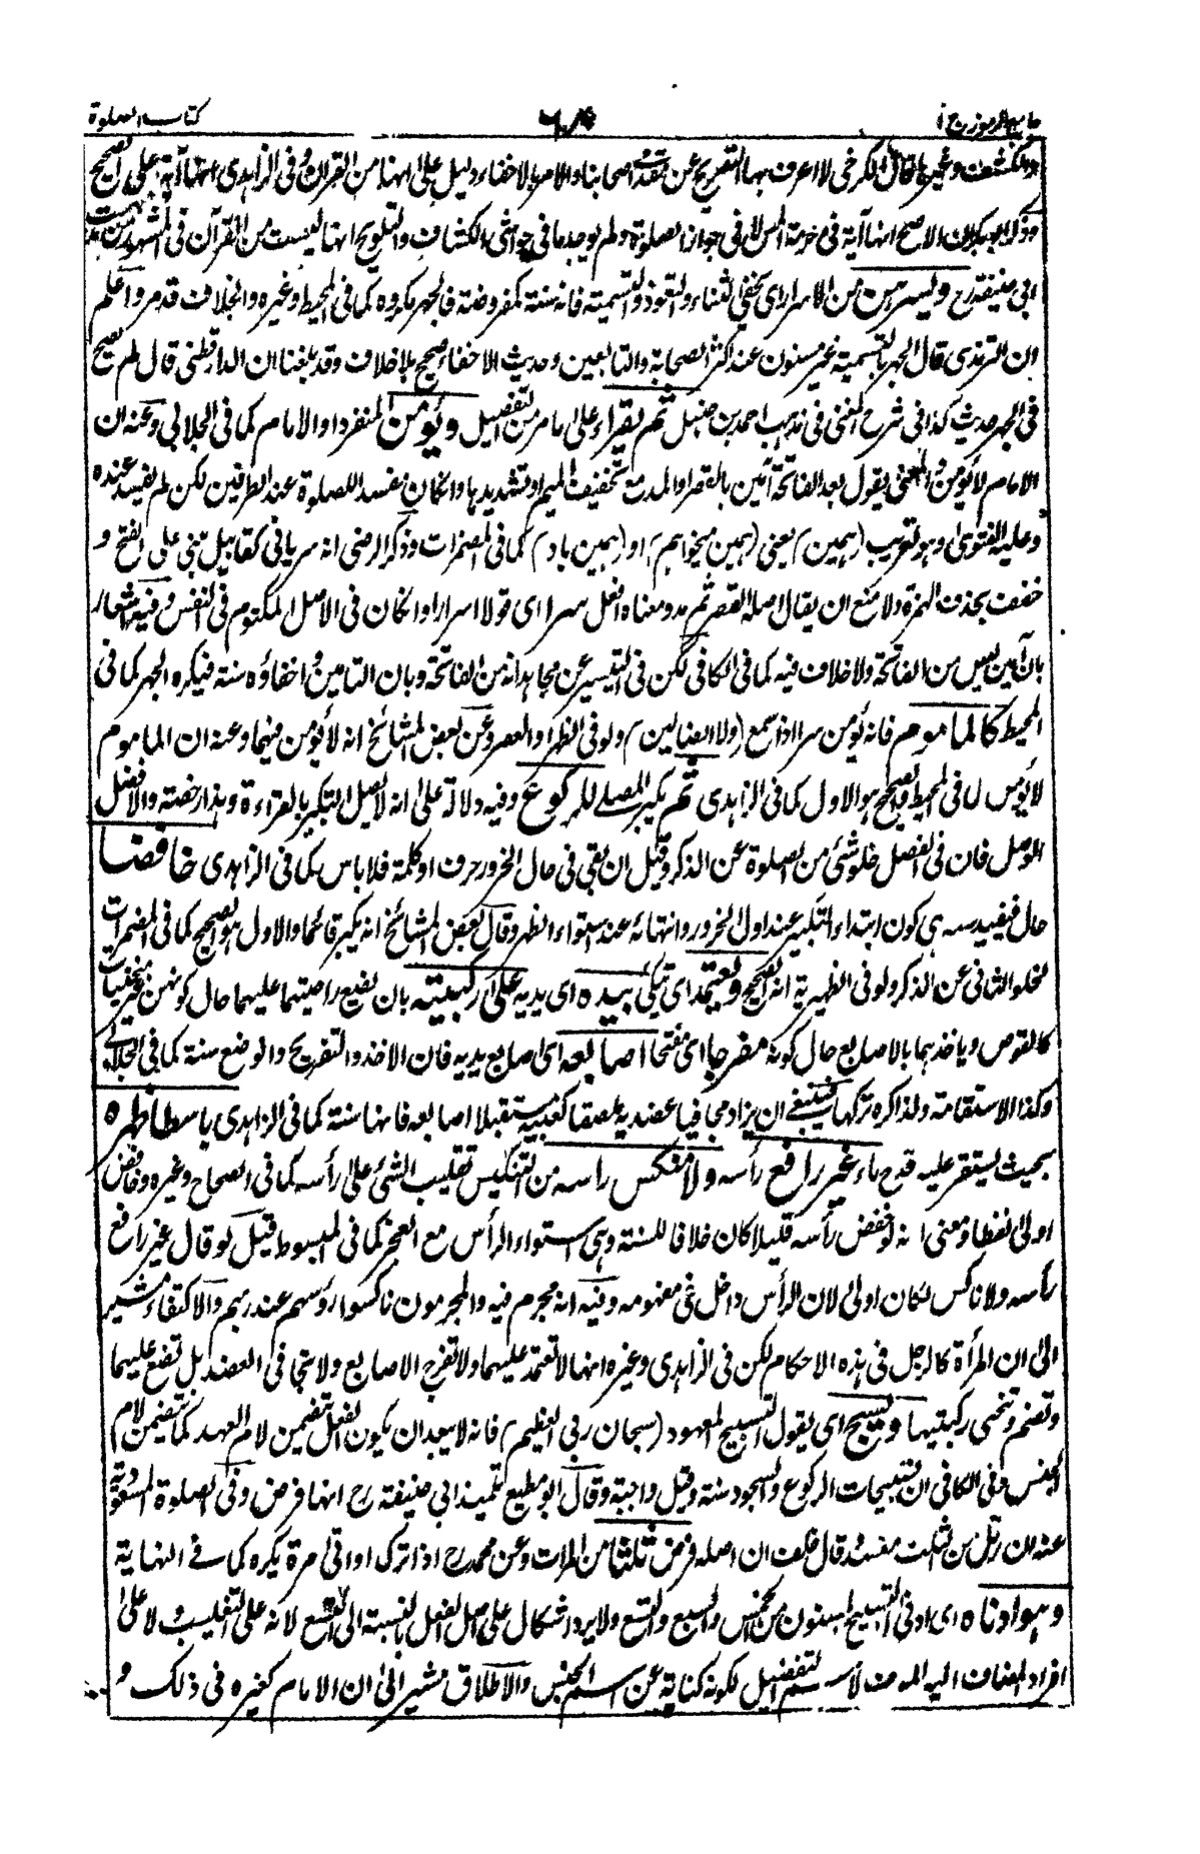 جامع الرموز ج ١
كتاب الصلوة
وغيرها قال الكرخى لا اعرف بهذا التصريح عن متقدمى اصحابنا والامر بالاخفاء دليل على انها من القرآن وفى الزاهدى انها آية على الصحيح
الاصح انها آية فى حرمة المس لا فى جواز الصلوة ولم يوجد ما فى حواشى الكشاف والتلويح انها ليست من القرآن فى المشهور من مذهب
ابى حنيفة رح ويسرهن من الاسرار اى يخفى الثناء والتعوذ والتسمية فانه سنة كمفروضة فالجهر مكروه كما فى المحيط وغيره والخلاف قد مر واعلم
ان الترمذى قال الجهر بالتسمية غير مسنون عند اكثر الصحابة والتابعين وحديث الاخفاء صحيح بلا خلاف وقد بلغنا ان الدارقطنى قال لم يصح
فى الجهر حديث كذا فى شرح المغنى فى مذهب احمد بن حنبل ثم يقراء على ما مر من التفصيل ويؤمن المنفرد او الامام كما فى الجلالى وعنه ان
الامام لا يؤمن والمعنى يقول بعد الفاتحة آمين بالقصر او المد مع تخفيف الميم او تشديدها وان كان مفسدا للصلوة عند الطرفين لكن لم يفسد عنده
وعليه الفتوى وهو تعريب (همين) يعنى (همين ميخواهم) او (همين باد) كما فى المضمرات وذكر الرضى انه سريانى كقابيل بنى على الفتح و
خفف بحذف الهمزة ولا منع ان يقال اصله القصر ثم مد ومعناه افعل سرا اى قولا اسرارا وان كان فى الاصل المكتوم فى النفس وفيه اشعار
بان آمين ليس من الفاتحة ولا خلاف فيه كما فى الكافى لكن فى التيسير عن مجاهد انه من الفاتحة وبان التامين واخفاؤه سنة فيكره الجهر كما فى
المحيط كالماموم فانه يؤمن سرا اذا سمع (ولا الضالين) ولو فى الظهر والعصر وعن بعض المشائخ انه لا يؤمن فيهما وعنه ان الماموم
لا يؤمن كما فى المحيط والصحيح هو الاول كما فى الزاهدى ثم يكبر المصلى للركوع وفيه دلالة على انه لا يصل التكبير بالقراءة وهذا رخصة والافضل
الوصل فان فى الفصل خلو شئ من الصلوة عن الذكر وقيل ان بقى فى حال الخرور حرف او كلمة فلا باس كما فى الزاهدى خافضا
حال فيفيد كون ابتداء التكبير عند اول الخرور وانتهائه عند استواء الظهر وقال بعض المشائخ انه يكبر قائما والاول هو الصحيح كما فى المضمرات
لخلو الثانى عن الذكر ولو فى الظهيرية انه الصحيح ويعتمد اى يتكى بيده اى يديه على ركبتيه بان يضع راحتيهما عليهما حال كونهن منحنيات
كالقوس وياخذهما بالاصابع حال كونه مفرجا اى مفتحا اصابعه اى اصابع يديه فان الاخذ والتفريج والوضع سنة كما فى الجلالى
وكذا الاستقامة ولذا كره تركها فينبغى ان يزاد مجافيا عضديه ملصقا كعبيه مستقبلا اصابعه فانها سنة كما فى الزاهدى باسطا ظهره
بحيث يستقر عليه قدح ماء غير رافع رأسه ولا منكس راسه من التنكيس تقليب الشئ على رأسه كما فى الصحاح وغيره وخافض
اولى لفظا ومعنى انه لو خفض رأسه قليلا كان خلافا للسنة وهى استواء الرأس مع العجز كما فى المبسوط قيل لو قال غير رافع
رأسه ولا ناكس لكان اولى لان الرأس داخل فى مفهومه وفيه انه مجرم فيه والمجرمون ناكسوا رؤسهم عند ربهم والاكتفاء مشير
الى ان المرأة كالرجل فى هذه الاحكام لكن فى الزاهدى وغيره انها لا تعتمد عليهما ولا تفرج الاصابع ولا تتجافى العضد بل تضع عليهما
وتضم وتنحنى ركبتيها ويسبح اى يقول التسبيح المعهود (سبحان ربى العظيم) فانه لا يبعد ان يكون الفعل يتضمن لام العهد كما يتضمن لام
الجنس وفى الكافى ان تسبيحات الركوع والسجود سنة وقيل واجبة وقال ابو مطيع تلميذ ابى حنيفة رح انها فرض وفى الصلوة
عنه ان ترك من ثلث مفسد قال خلف ان اصله فرض ثلثا من المرات وعن محمد رح اذا ترك او اتى مرة يكره كما فى النهاية
وهو ادناه اى ادنى التسبيح المسنون من الخمس والسبع والتسع ولا يرد اشكال على اصل الفعل بالنسبة الى التسع لانه على التغليب ولا على
افراد المضاف اليه الموصوف لاسم التفضيل لكونه كناية عن اسم الجنس والاطلاق مشير الى ان الامام كغيره فى ذلك و